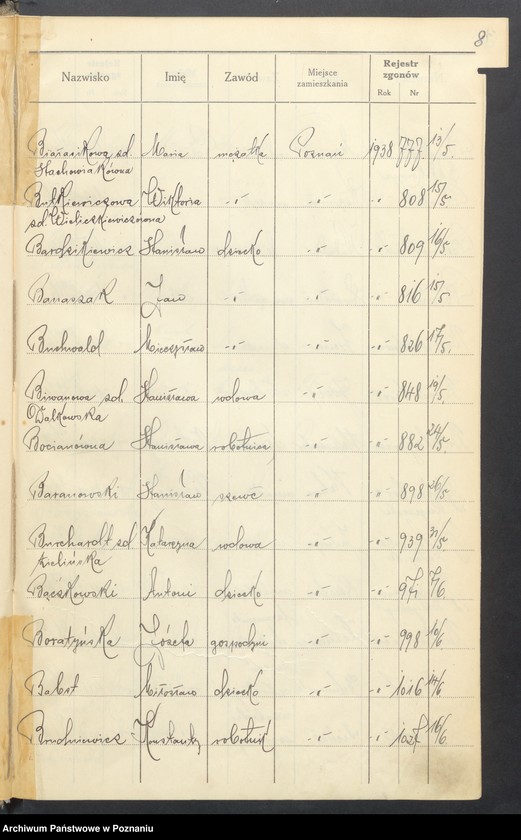 8
Nazwisko Imię Zawód Miejsce zamieszkania Rejestr zgonów
Rok Nr
Maria mężatka Poznań 1938 777 13/5.
Stachowiakówna
Butkiewiczowa Wiktoria -"- -"- -"- 808 15/5
zd. Wieliczkiewiczówna
Bardzikiewicz Stanisław dziecko -"- -"- 809 16/5
Banaszak Jan -"- -"- -"- 816 15/5
Buchwald Mieczysław -"- -"- -"- 826 17/5.
zd. Stanisława wdowa -"- -"- 848 19/5
Walkowska
Bocianówna Stanisława robotnica -"- -"- 882 24/5.
Baranowski Stanisław szewc -"- -"- 898 26/5
Burchardt zd Katarzyna wdowa -"- -"- 939 31/5
Zielińska
Bączkowski Antoni dziecko -"- -"- 971 7/6
Boratyńska Józefa gospodyni -"- -"- 998 10/6
Babst Miłosław dziecko -"- -"- 1016 14/6
Brudniewicz Konstanty robotnik -"- -"- 1027 16/6.
Archiwum Państwowe w Poznaniu